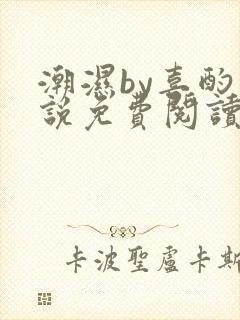 潮濕by喜酌
說免費閱讀
卡波聖盧卡斯